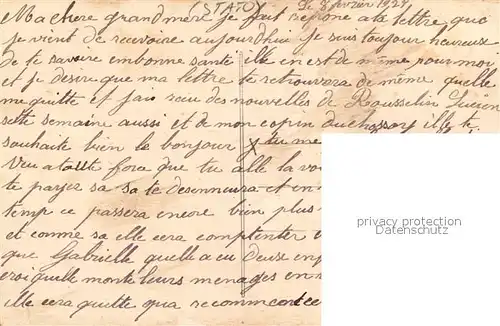 (STATO) Le 8 fevrier 1921
Ma chere grand mere je fait repone a ta lettre que
je vient de recevoire aujourdhui je suis toujour heureuse
de te savoire en bonne santé elle en est de même pour moi
et je desire que ma lettre te retrouvera de même quelle
me quitte et j'ais recu des nouvelles de Rousselin Lucien
sette semaine aussi et de mon copin duchossoy ille te
souhaite bien le bonjour tu me
Veu a toute force que tu alle la
te payez sa sa te desennuira et en
temp ce passera encore bien plus
et comme sa elle cera compter
que Gabrielle quelle a eu deuse
quelle monte leurs menages en
ille cera quitte qua recommence
privacy protection
Datenschutz